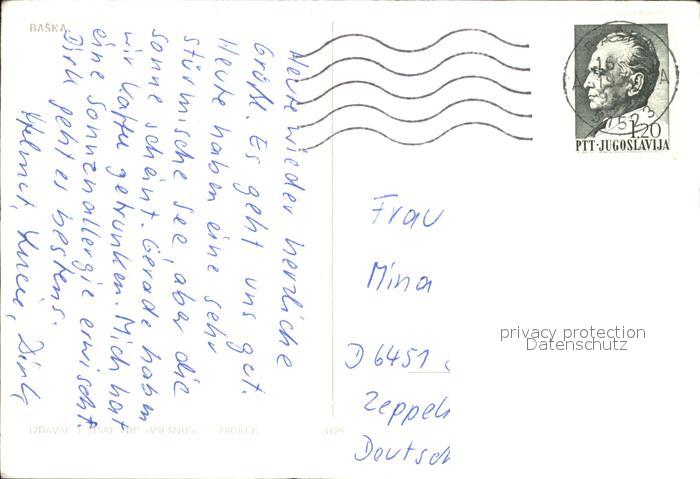 BAŠKA
Heute wieder herzliche
Grüße. Es geht uns gut.
Heute haben eine sehr
stürmische See, aber die
Sonne scheint. Gerade haben
wir Kaffee getrunken. Mich hat
eine Sonnenallergie erwischt.
Dirk geht es bestens.
Helmut, Lucie, Dirk
ZAGREB 4125
51523
1,20
PTT-JUGOSLAVIJA
Frau
Mina
D 6451
Zeppeli
Deutsch
privacy protection
Datenschutz